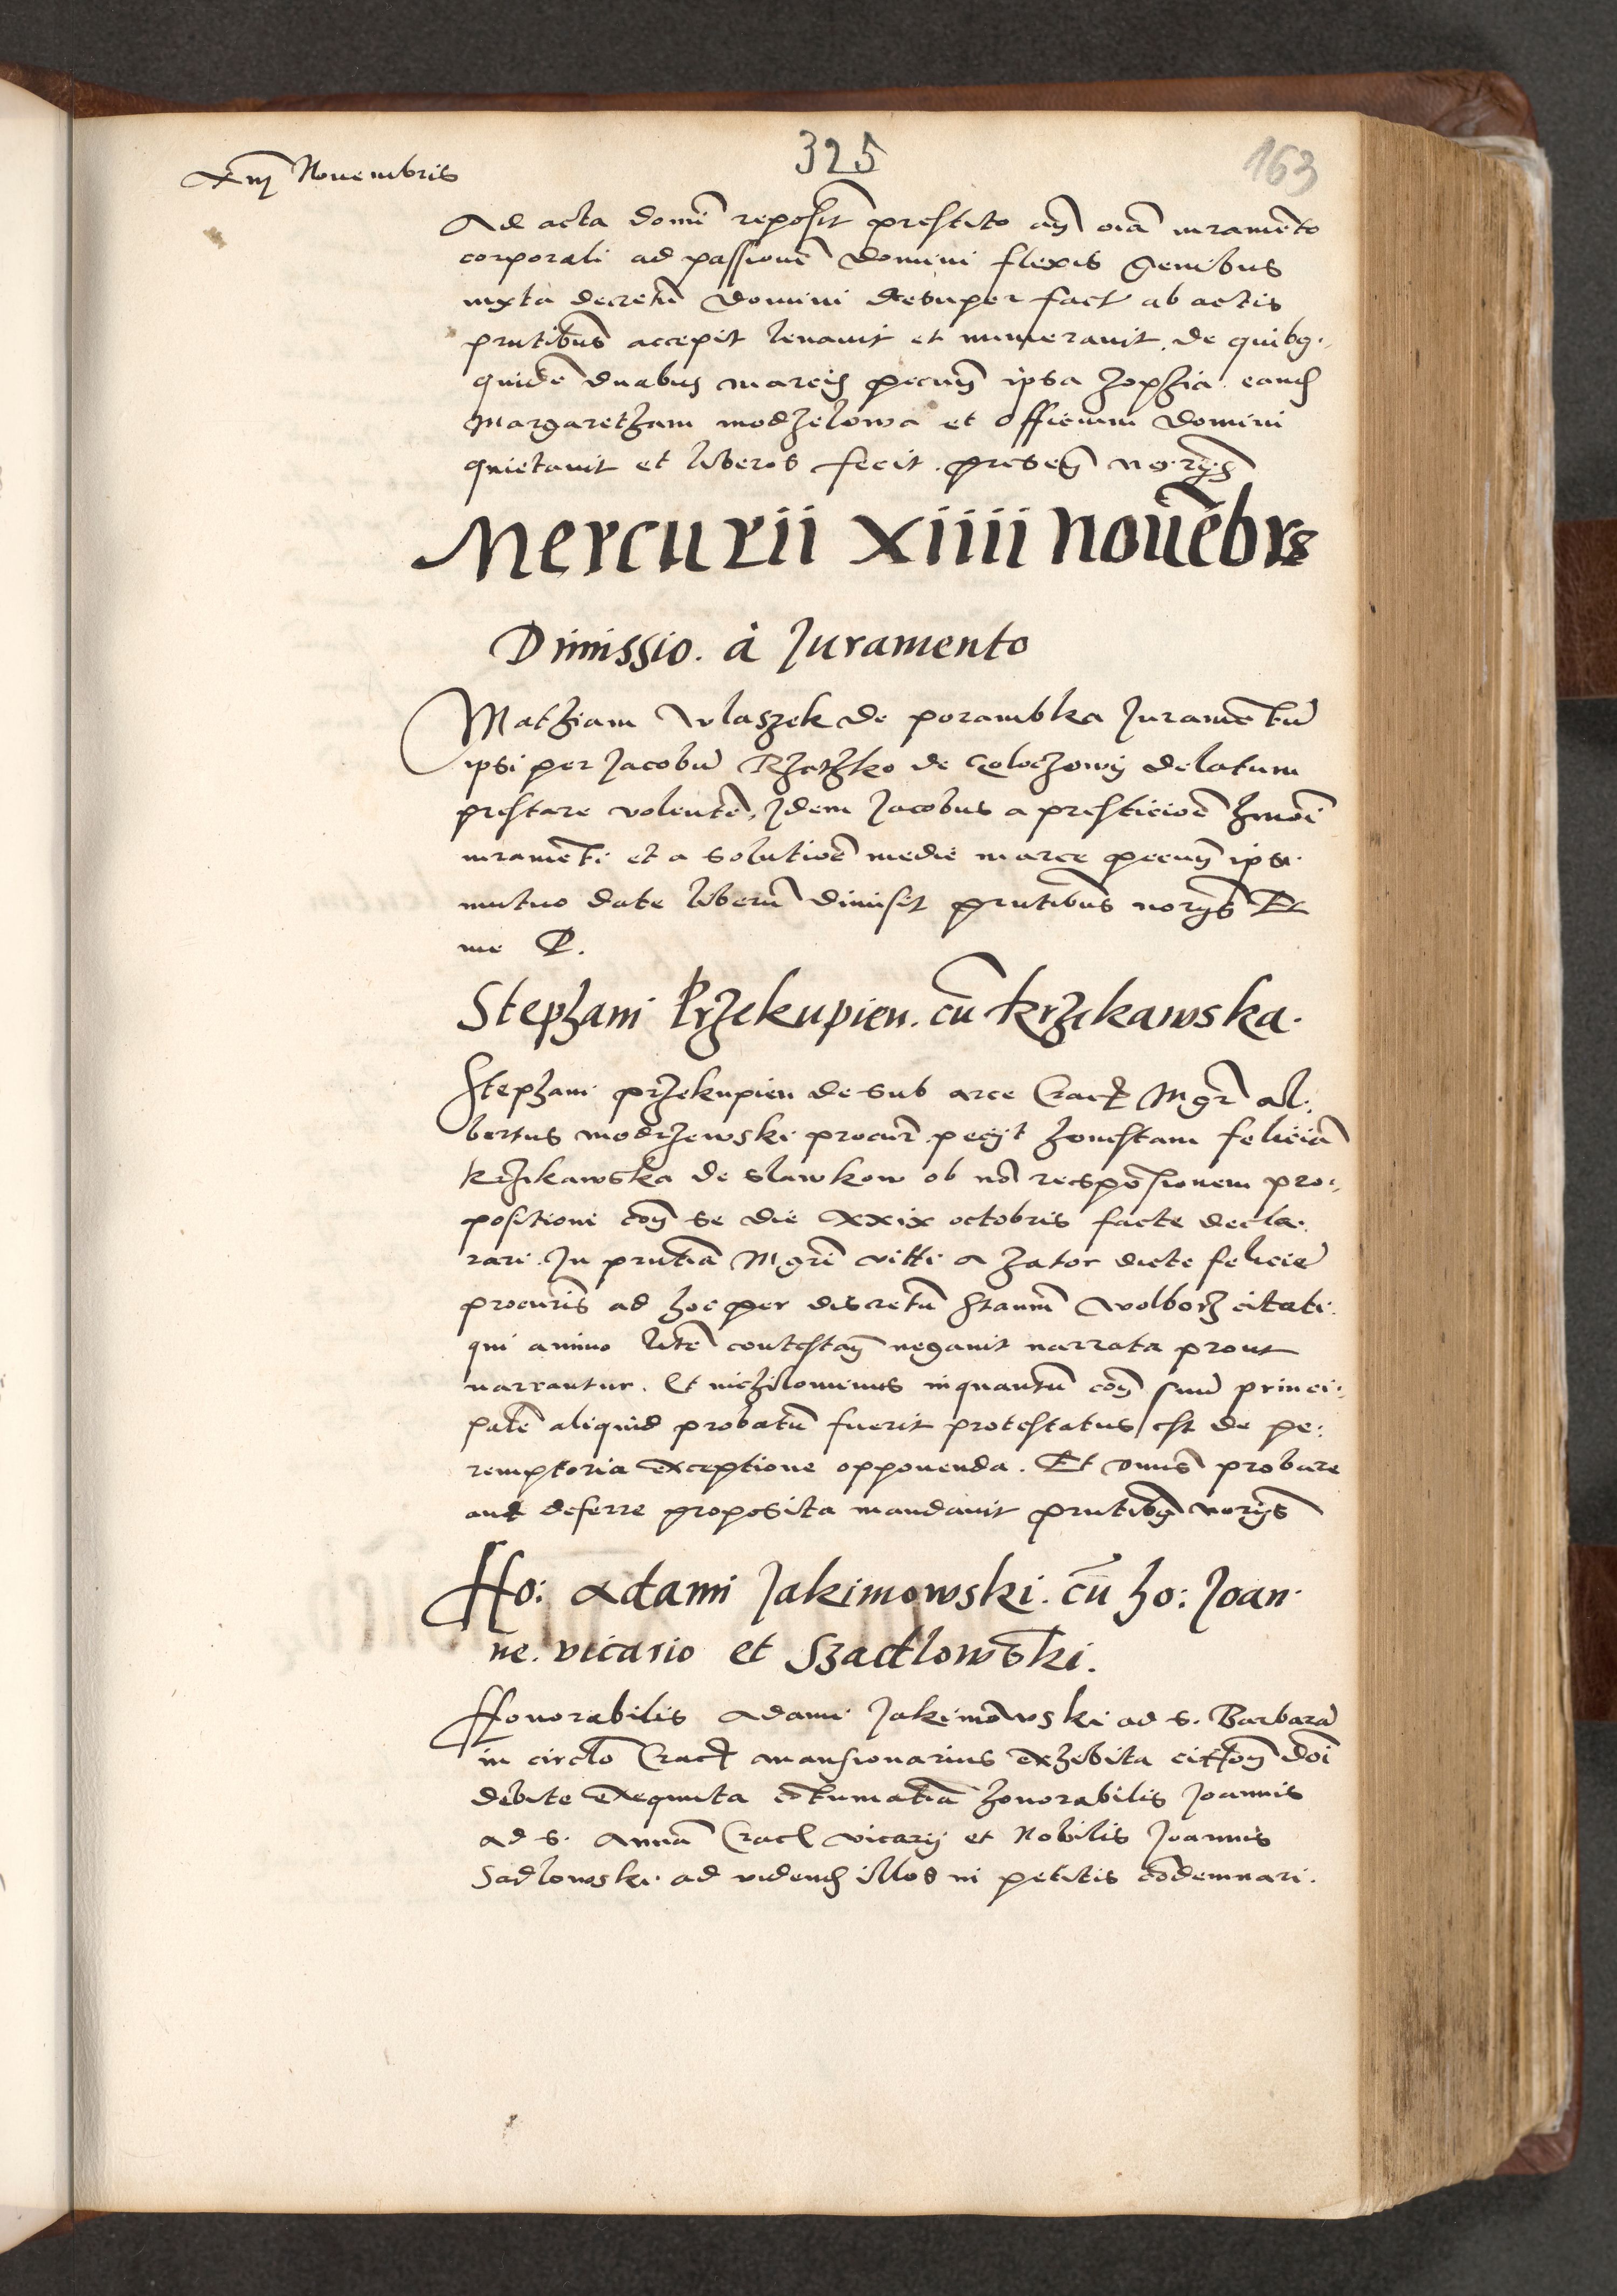 325
163
xiij Nouembris
Ad acta domi reposit prestito añ oīa iuramēto
corporali ad passionē domini flexis genibus
iuxta decretū domini desuper fact ab actis
pntibus accepit leuauit et numerauit, de quibq
quidē duabus marcis pecuñ ipsa Zophia eand
Margaretham modzelowa et officium domini
quietauit et liberos fecit. preseñ norijs
Mercurii xiiii nouēbrs
Dimissio. a Juramento
Mathiam Wlaszek de porambka Juramētū
ipsi per Jacobū Rzetzko de delatum
prestare volentē, Idem Jacobus a presticioē hmōi
iuramēti et a solutioē medie marce pecuñ ipsi
mutuo date liberū dimisit pntibus norijs Et
me P.
Stephani Przekupien. cū krzikawska.
Stephani przekupien de sub arce Crac Mgr al:
bertus modrzewski procur pecijt honestam feliciā
krzikawska de slawkow ob nō respōsionem pro:
positioni coñ se die xxix octobris facte decla:
rari. In pntia Mgri viti a zator dicte felicie
procuris ad hoc per discretū Stanū Wolborz citati.
qui animo litē contestañ negauit narrata prout
narrantur. Et nichilominus inquantū coñ suū princi:
palē aliquid probatū fuerit protestatus est de pe:
remptoria exceptione opponenda. Et dnus probare
aut deferre proposita mandauit pntibq norijs
Ho: Adami Jakimowski. cū ho: Joan
ne. vicario et Szadlowski.
Honorabilis Adami Jakimowski ad s. Barbarā
in circlo Crac mansionarius exhibita cittoñ dōi
debite exequuta cōtumatiā honorabilis Joannis
ad s. Annā Crac vicarij et Nobilis Joannis
Sadlowski ad videnđ illos in petitis cōdemnari.